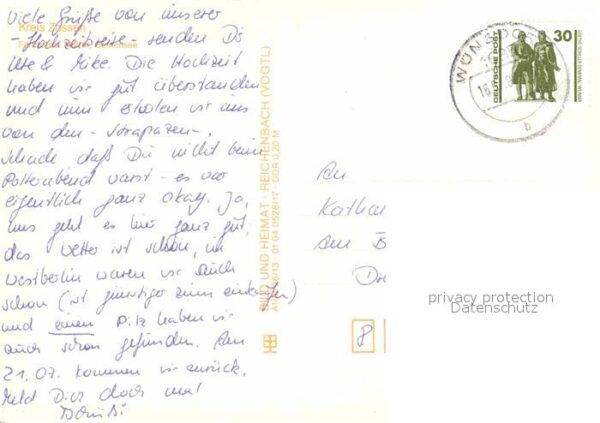 Viele Grüße von unserer
- Hochzeitsreise - senden Dir
Ute & Mike. Die Hochzeit
haben wir gut überstanden
und nun erholen wir uns
von den - Strapazen -.
Schade daß Du nicht beim
Polterabend warst - es war
eigentlich ganz okay. Ja,
uns geht es hier ganz gut,
das Wetter ist schön, in
Westberlin waren wir auch
schon (ist günstiger zum einkaufen)
und einen Pilz haben wir
auch schon gefunden. Am
21.07. kommen wir zurück.
Meld Dich doch mal
Kreis Zossen
BILD UND HEIMAT · REICHENBACH (VOGTL)
01 04 0528/17 · DDR 0,20 M
WÜNSDO
b
DEUTSCHE POST
30
An
Kathar
Am
8
privacy protection
Datenschutz